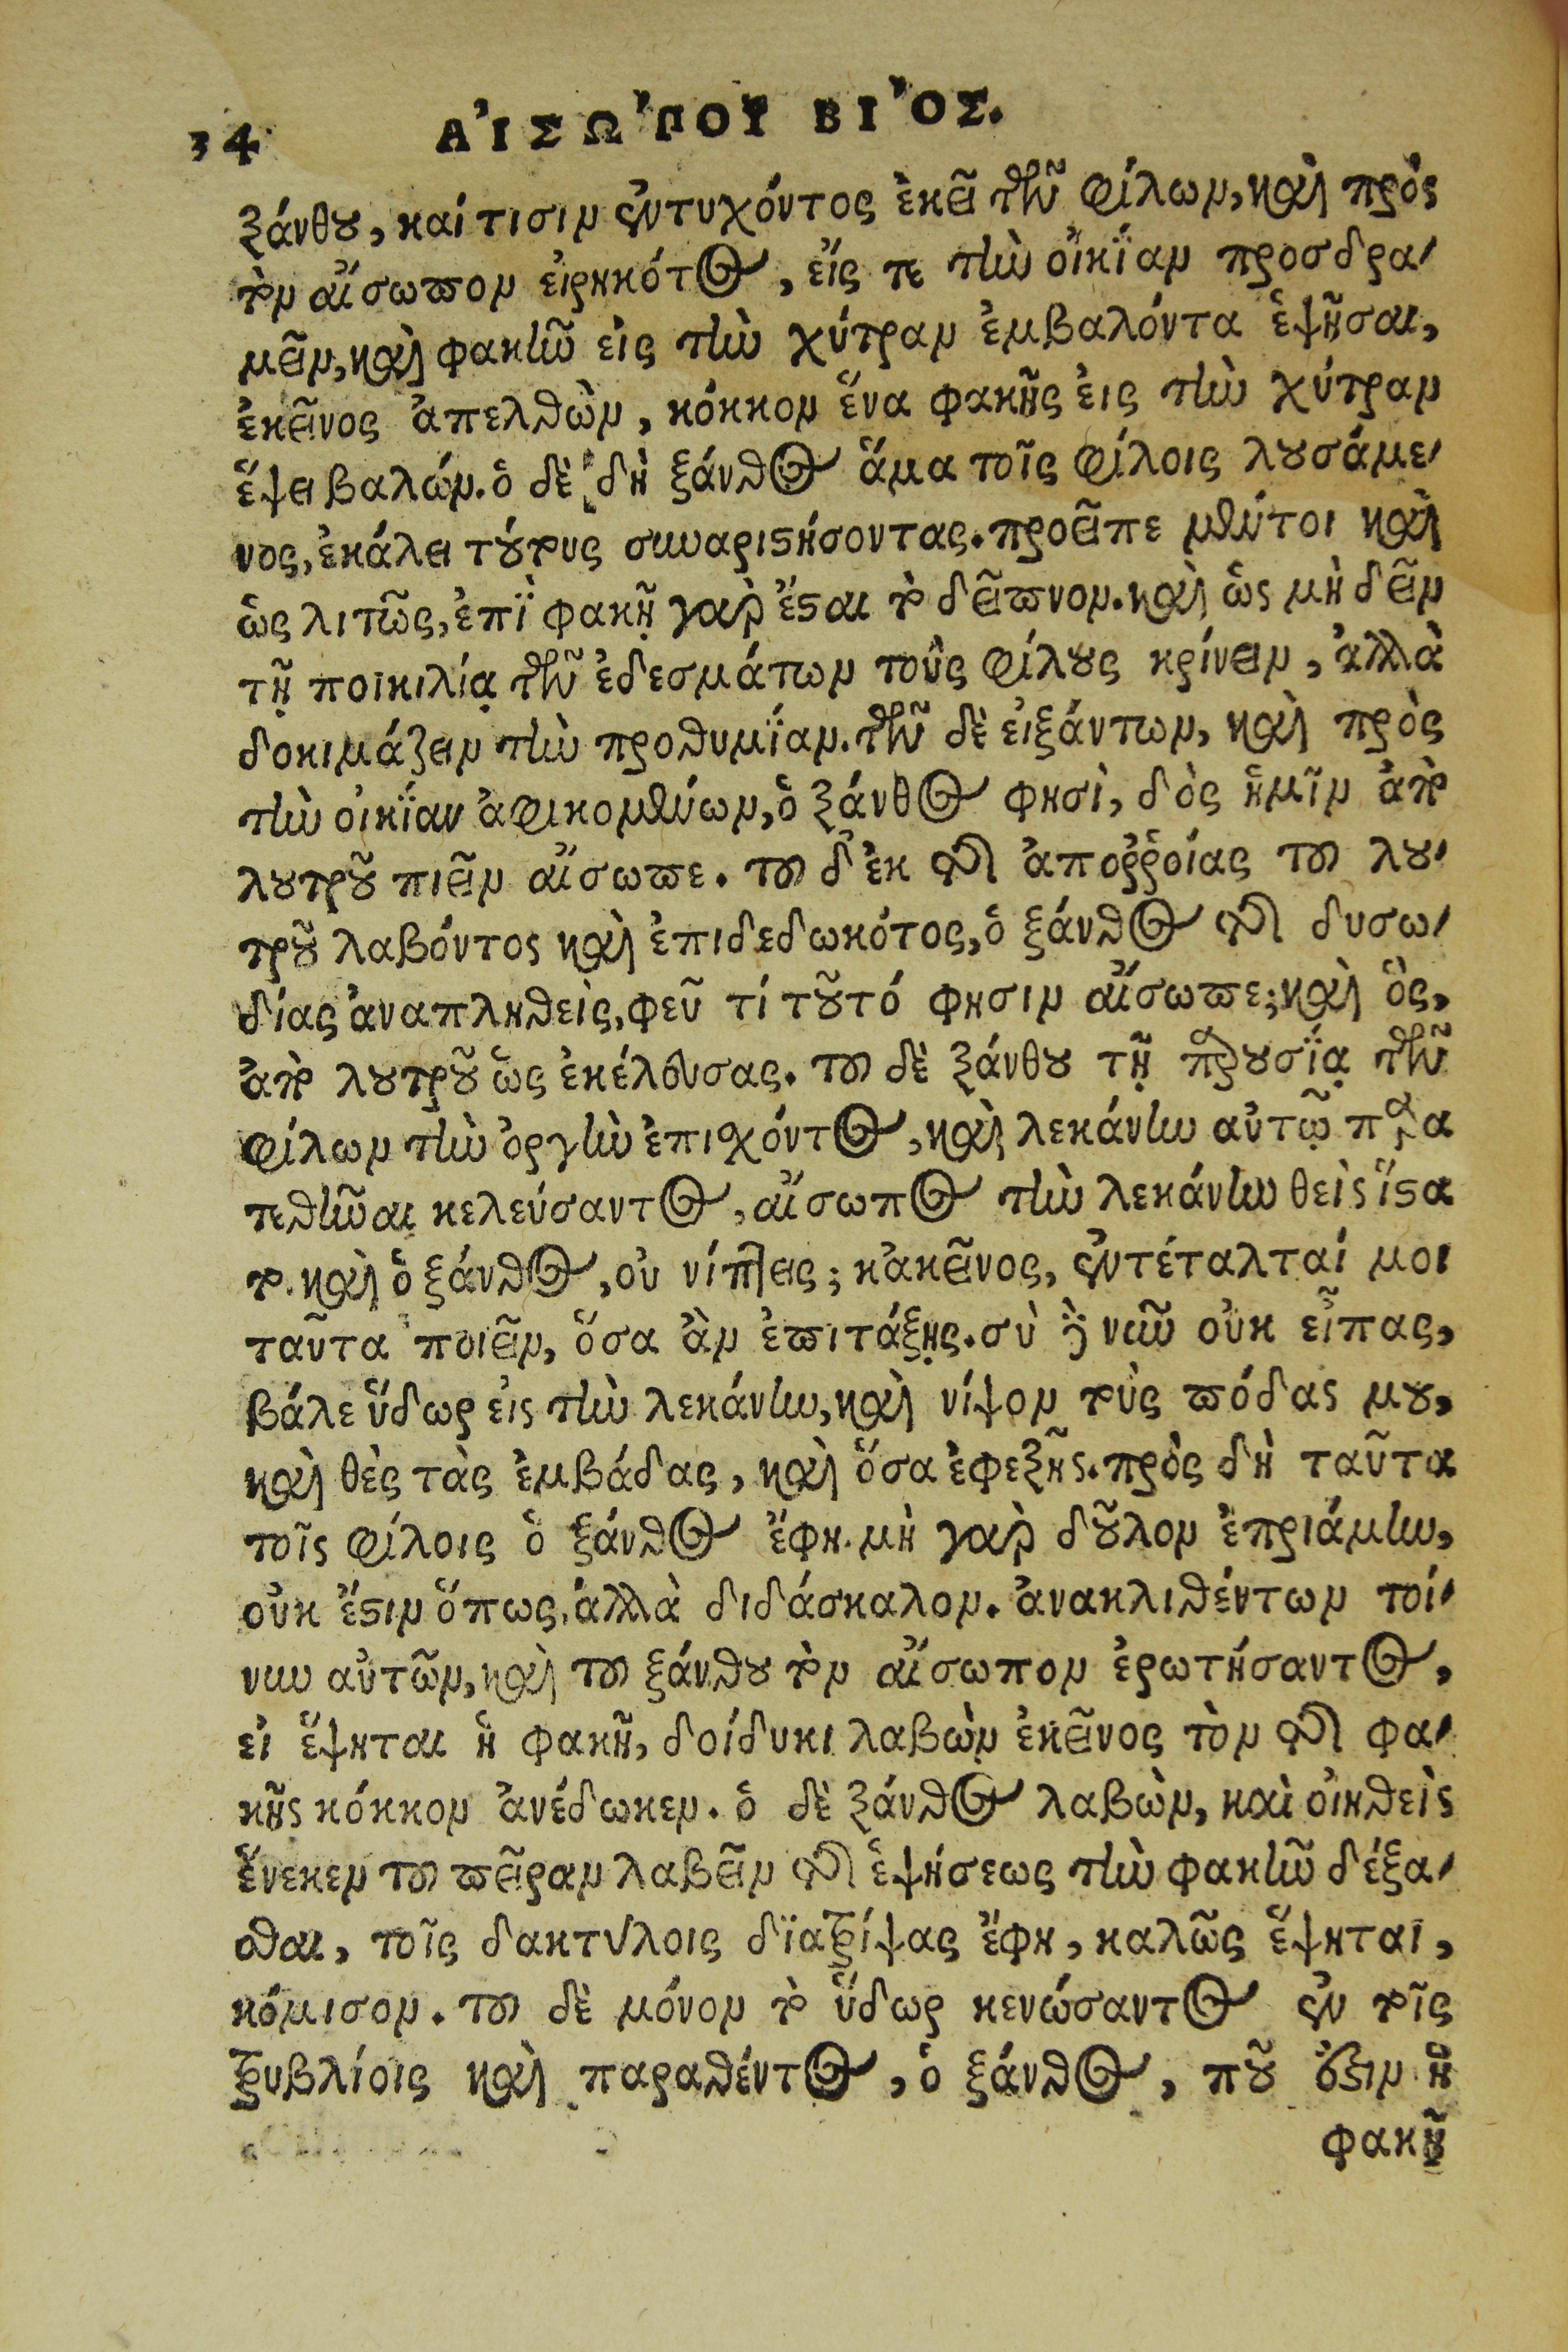 34 ΑἸΣΩ´ΠΟΥ ΒΙ´ΟΣ.
ξάνθου, καί τισιν ἐντυχόντος ἐκεῖ τῶν φίλων, καὶ πρὸς
τὸν αἴσωπον εἰρηκότος, εἴς τε τὴν οἰκΐαν προσδρα-
μεῖν, καὶ φακῆν εἰς τὴν χύτραν ἐμβαλόντα ἑψῆσαι,
ἐκεῖνος ἀπελθὼν, κόκκον ἕνα φακῆς εἰς τὴν χύτραν
ἕψει βαλών. ὁ δὲ δὴ ξάνθος ἅμα τοῖς φίλοις λουσάμε-
νος, ἐκάλει τούτους συναριστήσοντας. προεῖπε μέντοι καὶ
ὡς λιτῶς, ἐπῒ φακῇ γὰρ ἔσται τὸ δεῖπνον. καὶ ὡς μὴ δεῖν
τῇ ποικιλίᾳ τῶν ἐδεσμάτων τοὺς φίλους κρίνειν, ἀλλὰ
δοκιμάζειν τὴν προθυμΐαν. τῶν δὲ εἰξάντων, καὶ πρὸς
τὴν οἰκΐαν ἀφικομένων, ὁ ξάνθος φησὶ, δὸς ἡμῖν ἀπὸ
λουτροῦ πιεῖν αἴσωπε. τοῦ δ' ἐκ τῆς ἀποῤῥοίας τοῦ λου-
τροῦ λαβόντος καὶ ἐπιδεδωκότος, ὁ ξάνθος τῆς δυσω-
δίας ἀναπληθεὶς, φεῦ τί τοῦτό φησιν αἴσωπε; καὶ ὃς,
ἀπὸ λουτροῦ ὡς ἐκέλευσας. τοῦ δὲ ξάνθου τῇ παρουσΐᾳ τῶν
φίλων τὴν ὀργὴν ἐπισχόντος, καὶ λεκάνην αὐτῷ παρα
τεθῆναι κελεύσαντος, αἴσωπος τὴν λεκάνην θεὶς ἵστα
το. καὶ ὁ ξάνθος, οὐ νίπτεις; κἀκεῖνος, ἐντέταλταί μοι
ταῦτα ποιεῖν, ὅσα ἂν ἐπιτάξῃς. σὺ δὲ νῦν οὐκ εἶπας,
βάλε ὕδωρ εἰς τὴν λεκάνην, καὶ νίψον τοὺς πόδας μου,
καὶ θὲς τὰς ἐμβάδας, καὶ ὅσα ἐφεξῆς. πρὸς δὴ ταῦτα
τοῖς φίλοις ὁ ξάνθος ἔφη. μὴ γὰρ δοῦλον ἐπριάμην,
οὐκ ἔστιν ὅπως, ἀλλὰ διδάσκαλον. ἀνακλιθέντων τοί-
νυν αὐτῶν, καὶ τοῦ ξάνθου τὸν αἴσωπον ἐρωτήσαντος,
εἰ ἕψηται ἡ φακῆ, δοίδυκι λαβὼν ἐκεῖνος τὸν τῆς φα-
κῆς κόκκον ἀνέδωκεν. ὁ δὲ ξάνθος λαβὼν, καὶ οἰηθεὶς
ἕνεκεν τοῦ πεῖραν λαβεῖν τῆς ἑψήσεως τὴν φακῆν δέξα-
σθαι, τοῖς δακτύλοις δϊατρίψας ἔφη, καλῶς ἕψηται,
κόμισον. τοῦ δὲ μόνον τὸ ὕδωρ κενώσαντος ἐν τοῖς
τρυβλίοις καὶ παραθέντος, ὁ ξάνθος, ποῦ ἐστιν ἡ
φακῆ